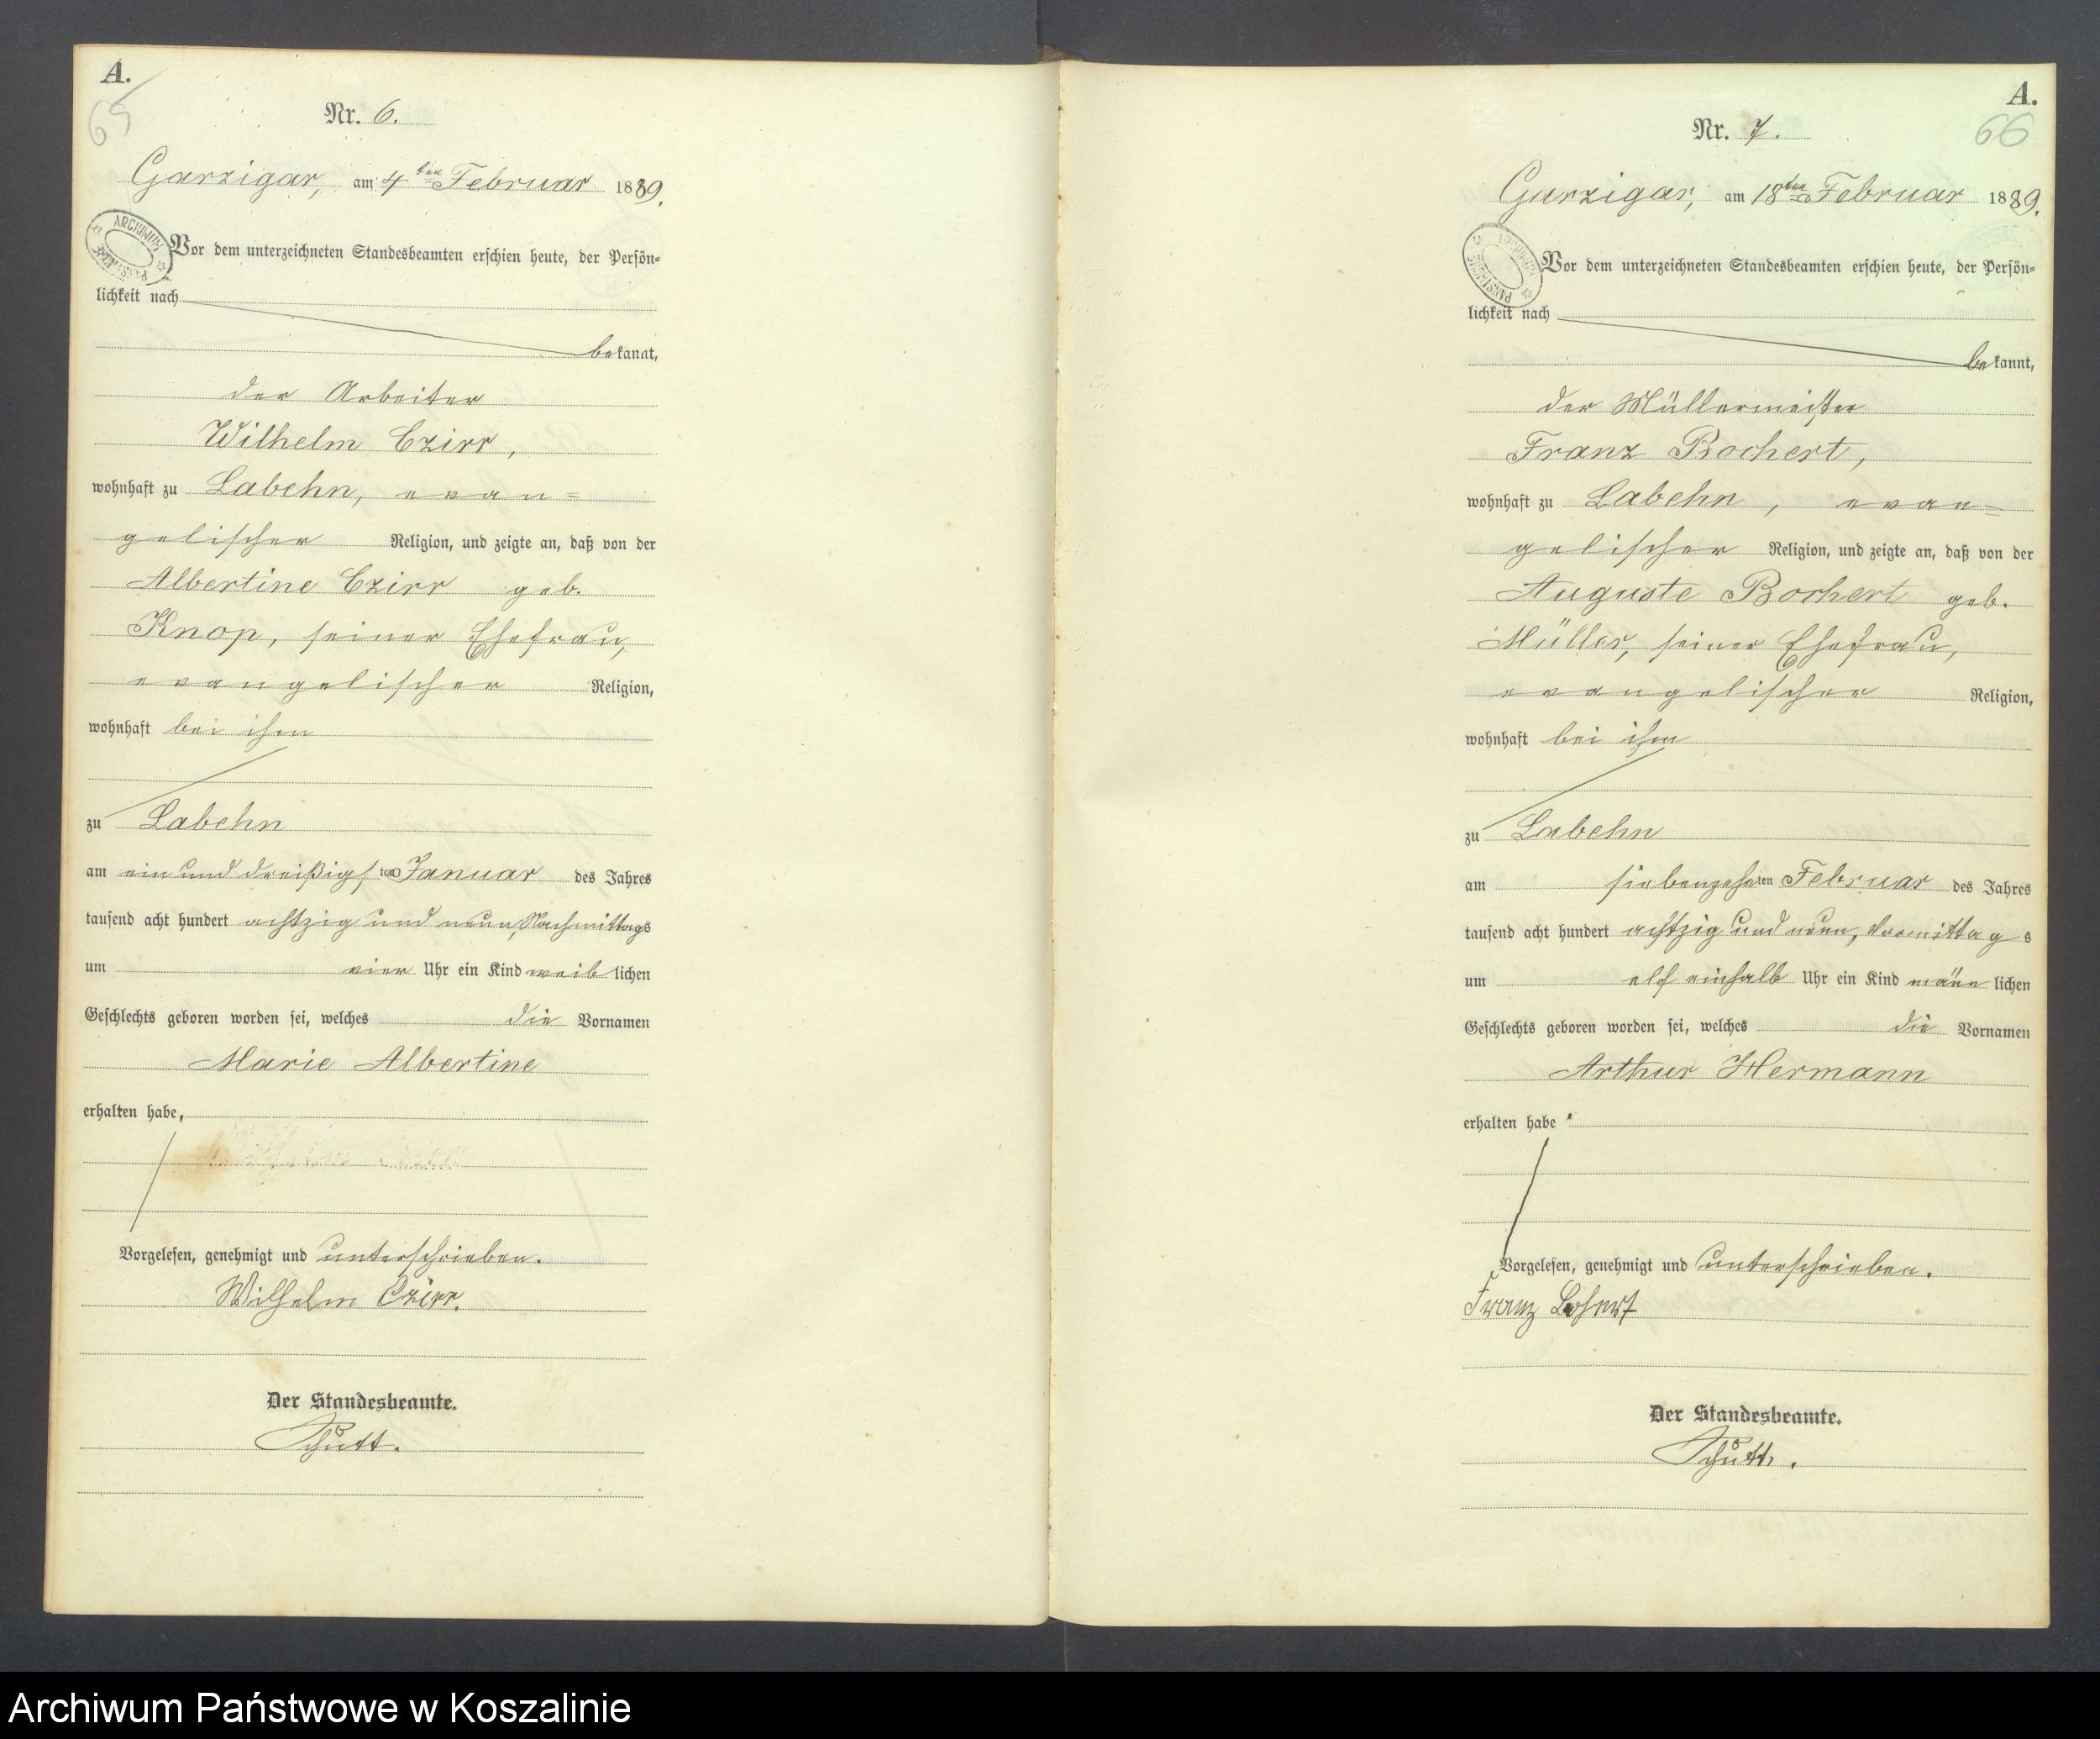 A.
65
Nr. 6.
Garzigar, am 4ten Februar 1889.
ARCHIWUM
Vor dem unterzeichneten Standesbeamten erschien heute, der Persön=
lichkeit nach
bekannt,
der Arbeiter
Wilhelm Czirr,
wohnhaft zu Labehn, evan=
gelischer Religion, und zeigte an, daß von der
Albertine Czirr geb.
Knop, seiner Ehefrau,
evangelischer Religion,
wohnhaft bei ihm
zu Labehn
am ein und dreißigsten Januar des Jahres
tausend acht hundert achtzig und neun, Nachmittags
um vier Uhr ein Kind weiblichen
Geschlechts geboren worden sei, welches die Vornamen
Marie Albertine
erhalten habe,
Vorgelesen, genehmigt und unterschrieben.
Wilhelm Czirr.
Der Standesbeamte.
Schütt.
A.
66
Nr. 7.
Garzigar, am 18ten Februar 1889.
Vor dem unterzeichneten Standesbeamten erschien heute, der Persön=
lichkeit nach
bekannt,
der Müllermeister
Franz Bochert,
wohnhaft zu Labehn, evan=
gelischer Religion, und zeigte an, daß von der
Auguste Bochert geb.
Müller, seiner Ehefrau,
evangelischer Religion,
wohnhaft bei ihm
zu Labehn
am siebenzehnten Februar des Jahres
tausend acht hundert achtzig und neun, Vormittags
um elf einhalb Uhr ein Kind männlichen
Geschlechts geboren worden sei, welches die Vornamen
Arthur Hermann
erhalten habe
Vorgelesen, genehmigt und unterschrieben.
Franz Bohert
Der Standesbeamte.
Schütt.
Archiwum Państwowe w Koszalinie